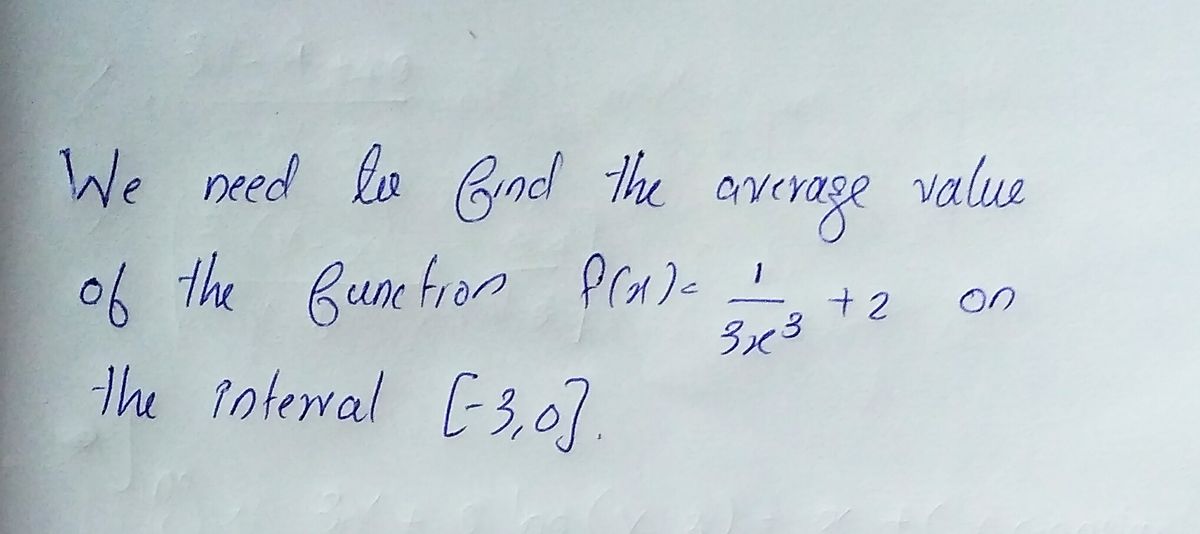 We need to find the average value
of the function f(x) = 1/3x³ + 2 on
the interval [-3,0].